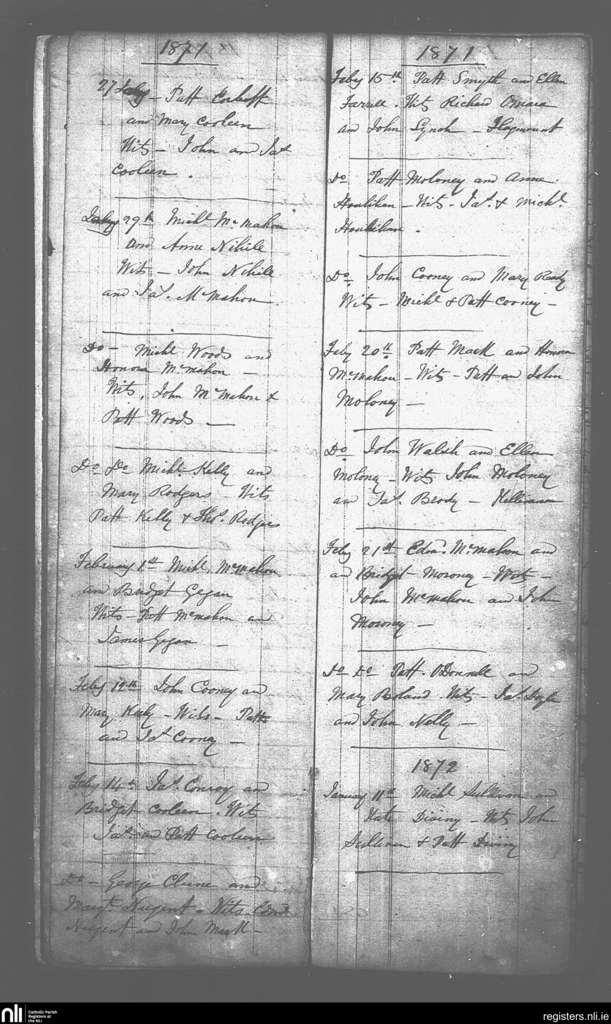 1871
27 Patt
and Mary Cooleen
Wits - John and Jas
Cooleen.
29th Michl McMahon
and Anne Nihill
Wits - John Nihill
and Jas. McMahon
Do - Michl Woods and
Honora McMahon -
Wits, John McMahon &
Patt Woods -
Do Do Michl Kelly and
Mary Rodgers Wits
Patt Kelly & Thos. Rodgers
February 1st Michl McMahon
and Bridget Gegan
Wits - Patt McMahon an
James Gegan -
Feby 12th John Cooney an
Mary - Wits - Patt
and Jas Cooney -
Feby 14th Jas. Conroy an
Bridget Cooleen. Wits
Jas and Patt Cooleen
Do - George Clune and
Margt Nugent - Wits
Nugent and John Mack -
1871
Feby 15th Patt Smyth an Ellen
Farrell. Wits Richard Omara
an John Lynch -
Do Patt Moloney and Anne
Houlihan - Wits - Jas. & Michl
Houlihan.
Do. John Cooney and Mary
Wits - Michl & Patt Cooney -
Feby 20th Patt Mack and Honora
McMahon - Wits - Patt an John
Moloney -
Do John Walsh and Ellen
Moloney - Wits John Moloney
an Jas. Brody -
Feby 21st Edw. McMahon an
an Bridget Moroney - Wits -
John McMahon an John
Moroney -
Do Do Patt. ODonnell an
Mary Boland Wits - Jas.
and John Nelly -
1872
January 11th Michl Sullivan an
Kate Diviny - Wits John
Sullivan & Patt Diviny
nli
Catholic Parish
Registers at
the NLI
registers.nli.ie